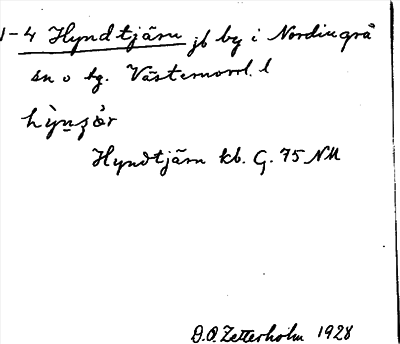 1-4 Hyndtjärn jb by i Nordingrå
sn o tg. Västernorrl. l
Hyndtjärn kb. G. 75 NM
D.O. Zetterholm 1928